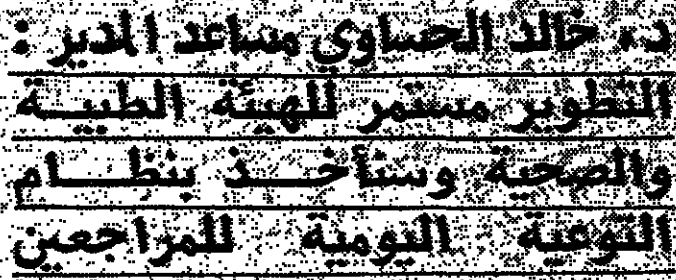 د. خالد الحساوي مساعد المدير :
التطوير مستمر للهيئة الطبية
والصحية وسنأخذ بنظام
التوعية اليومية للمراجعين